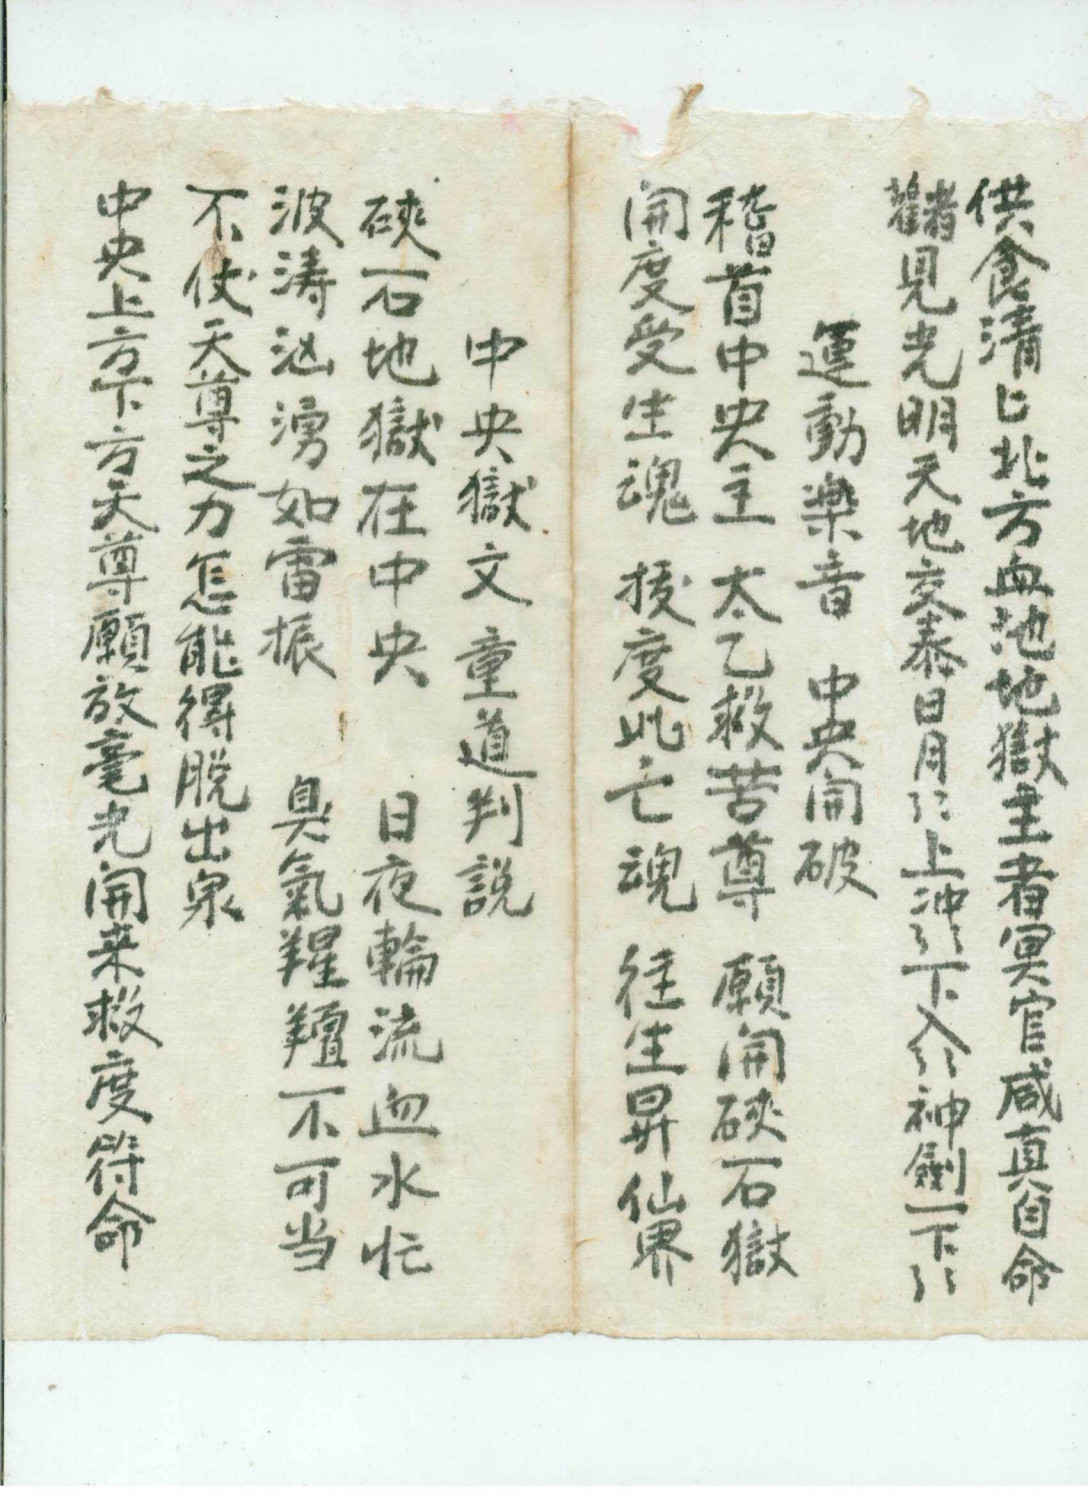 供食清㇔北方血池地獄主者冥官咸真自命
覩見光明天地交泰日月㇔㇔上冲㇔㇔下入㇔㇔神劍一下㇔㇔
運動樂音 中央開破
稽首中央主 太乙救苦尊 願開硤石獄
開度受生魂 拔度此亡魂 往生昇仙界
中央獄文童道判説
硤石地獄在中央 日夜輪流血水忙
波涛汹湧如雷振 臭氣羥羶不可当
不伏天尊之力怎能得脱出泉
中央上方下方天尊願放毫光開来救度符命